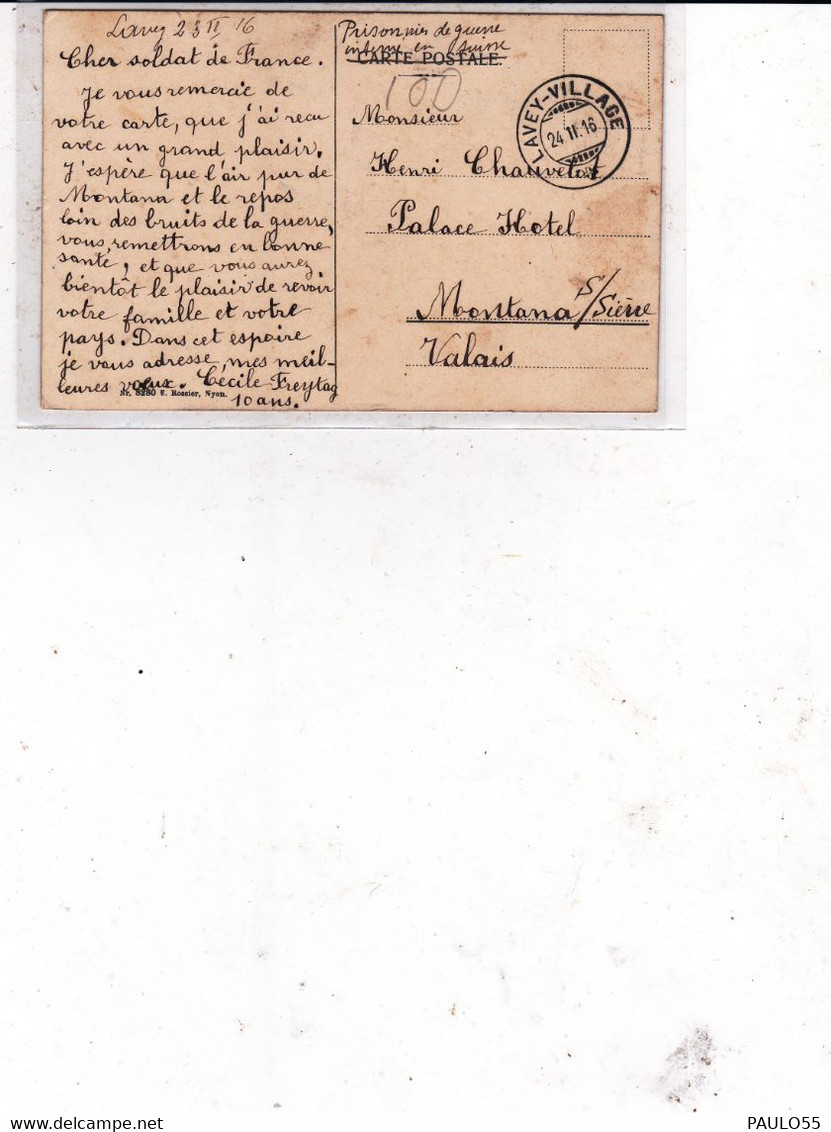 Lavey 23 II 16
Cher soldat de France.
Je vous remercie de
votre carte, que j'ai recu
avec un grand plaisir.
J'espère que l'air pur de
Montana et le repos
loin des bruits de la guerre,
vous remettrons en bonne
santé, et que vous aurez
bientôt le plaisir de revoir
votre famille et votre
pays. Dans cet espoire
je vous adresse, mes meil-
leures vœux. Cécile Freytag
10 ans.
Nr. 8280 E. Rossier, Nyon.
Prisonnier de guerre
interné en Suisse
CARTE POSTALE.
100
LAVEY-VILLAGE
24.II.16
Monsieur
Henri Chauvelot
Palace Hotel
Montana s/Sierre
Valais
PAULO55